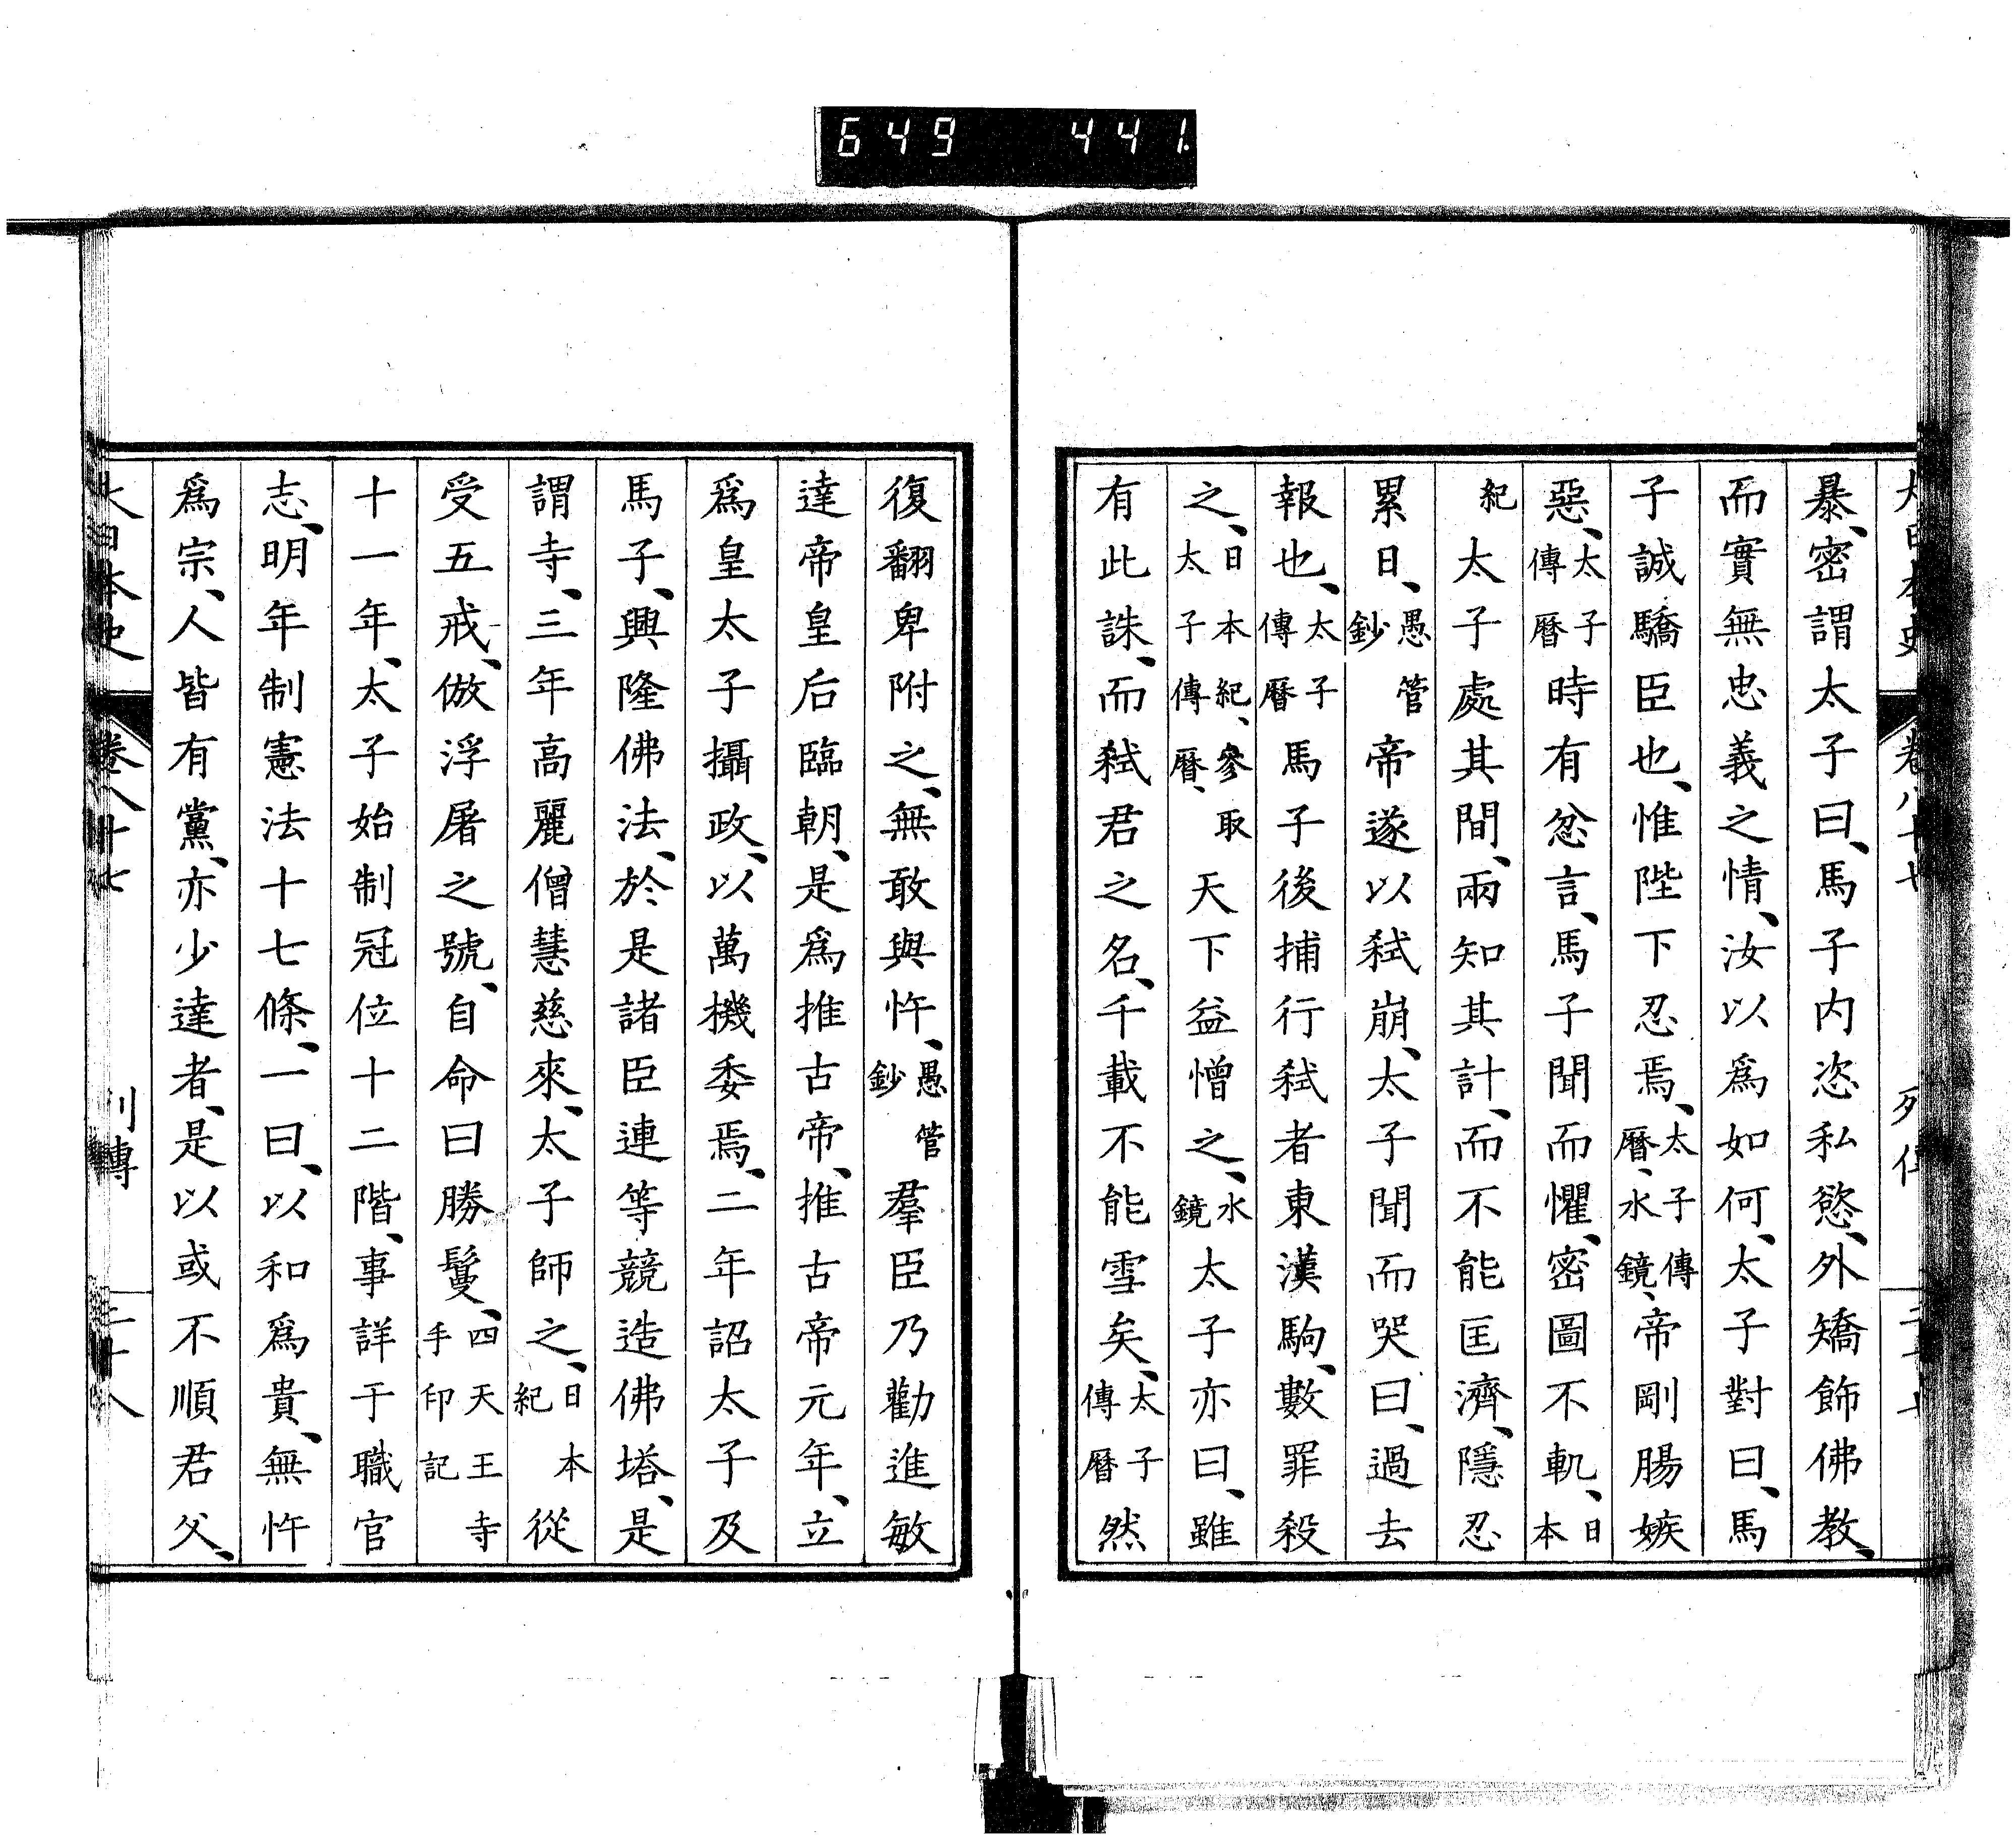 649 441.
大日本史 卷八十七 列傳
暴、密謂太子曰、馬子内恣私慾、外矯飾佛教、
而實無忠義之情、汝以爲如何、太子對曰、馬
子誠驕臣也、惟陛下忍焉、太子傳曆、水鏡、帝剛腸嫉
惡、太子傳曆時有忿言、馬子聞而懼、密圖不軌、日本
紀太子處其間、兩知其計、而不能匡濟、隱忍
累日、愚管鈔帝遂以弑崩、太子聞而哭曰、過去
報也、太子傳曆馬子後捕行弑者東漢駒、數罪殺
之、日本紀、參取太子傳曆、天下益憎之、水鏡太子亦曰、雖
有此誅、而弑君之名、千載不能雪矣、太子傳曆然
復翻卑附之、無敢與忤、愚管鈔羣臣乃勸進敏
達帝皇后臨朝、是爲推古帝、推古帝元年、立
爲皇太子攝政、以萬機委焉、二年詔太子及
馬子、興隆佛法、於是諸臣連等競造佛塔、是
謂寺、三年高麗僧慧慈來、太子師之、日本紀從
受五戒、倣浮屠之號、自命曰勝鬘、四天王寺手印記
十一年、太子始制冠位十二階、事詳于職官
志、明年制憲法十七條、一曰、以和爲貴、無忤
爲宗、人皆有黨、亦少達者、是以或不順君父、
大日本史 卷八十七 列傳 二十八